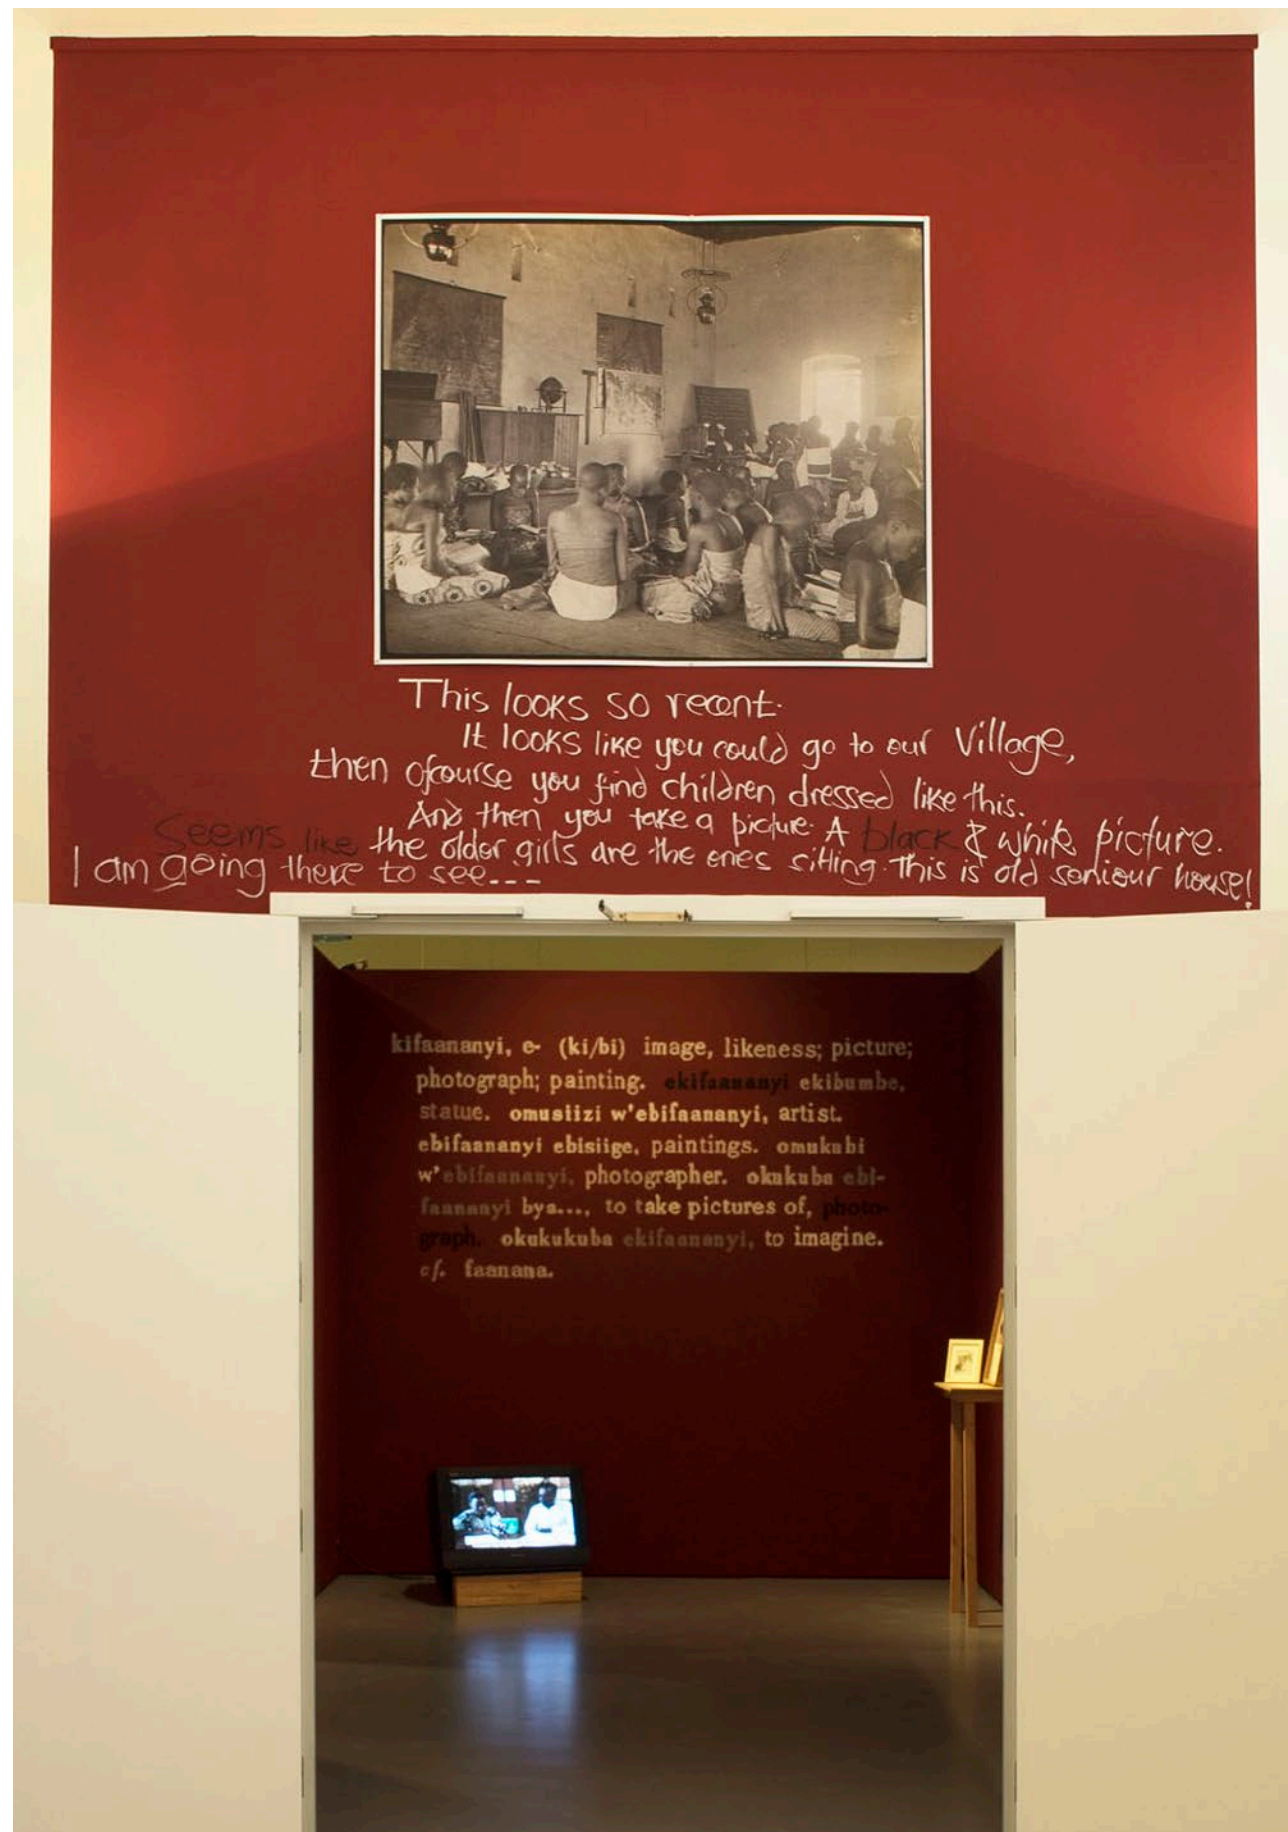 This looks so recent.
It looks like you could go to our Village,
then ofcourse you find children dressed like this.
And then you take a picture. A black & white picture.
Seems like the older girls are the ones sitting. This is old seniour house!
I am going there to see---
kifaananyi, e- (ki/bi) image, likeness; picture;
photograph; painting. ekifaananyi ekibumbe,
statue. omusiizi w'ebifaananyi, artist.
ebifaananyi ebisiige, paintings. omukubi
w'ebifaananyi, photographer. okukuba ebi-
faananyi bya..., to take pictures of, photo-
graph. okukukuba ekifaananyi, to imagine.
cf. faanana.